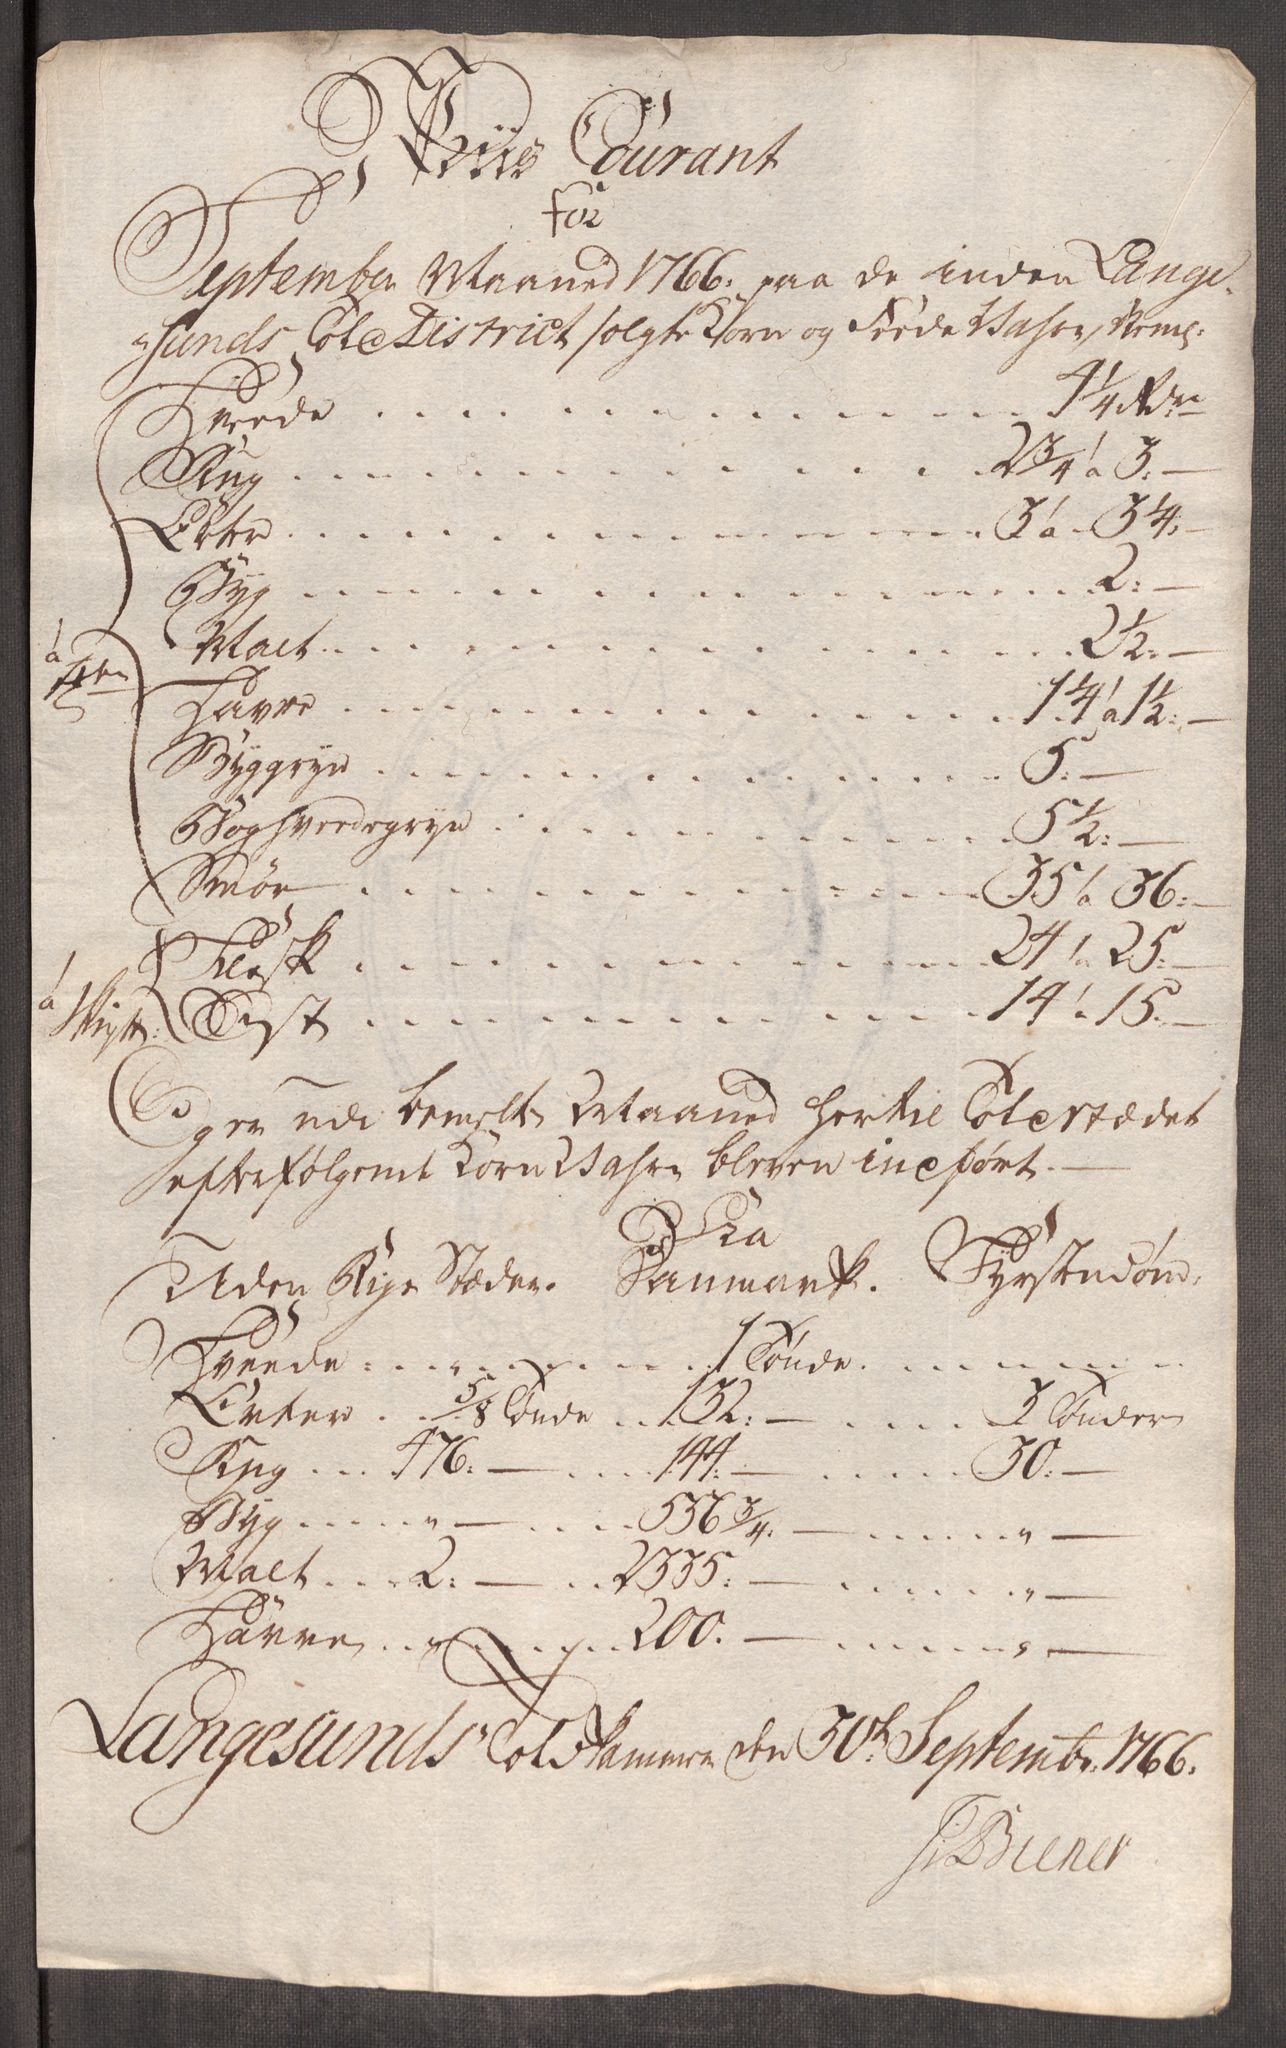 Priis Courant
for
September Maaned 1766. paa de inden Lange-
sunds Told District solgte Korn og Føede Wahre, Neml:
Hvede . . . . 4 1/4 Rdr
Rug . . . . 2 3/4 á 3. —
Erter . . . . 3 á 3 1/4. —
Byg . . . . 2. —
Malt . . . . 2 1/2. —
á Tde
Havre . . . . 1 1/4 á 1 1/2. —
Byggryn . . . . 5. —
Boghvedegryn . . . . 5 1/2. —
Smör . . . . 35 á 36. —
Flesk . . . . 24 á 25. —
á
Ost . . . . 14 á 15. —
Og er udi bemelte Maaned her til Toldstædet
efterfølgende Korn Wahre bleven indført. —
Fra
Uden Rigs Stæder. Danmark. Fyrstendöm.
Hvede . . . „ . . . 1 Tönde . . . .
Erter . . 5/8 Tönde . . 132. — . . . 3 Tönder
Rug . . . 476. — . . . 144. — . . . 30. —
Byg . . . „ — . . . 536 3/4. — . . . „ —
Malt . . . 2. — . . 2335. — . . . „ —
Havre . . „ . . . 200. — . . . „ —
Langesunds Told Kammer den 30te Septembr. 1766.
Biener